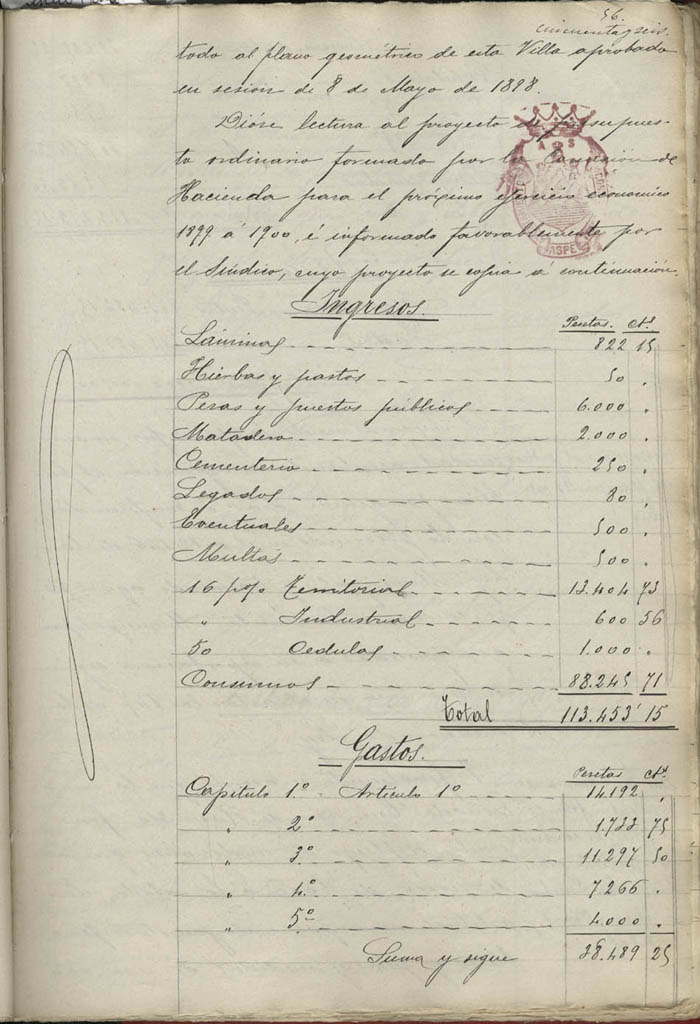 56.
cincuenta y seis.
todo al plano geométrico de esta Villa aprobado
en sesión de 8 de Mayo de 1898.
Dióse lectura al proyecto de presupues-
to ordinario formado por la Comisión de
Hacienda para el próximo ejercicio economico
1899 á 1900, é informado favorablemente por
el Síndico, cuyo proyecto se copia á continuación.
Ingresos.
Pesetas. Cts
Láminas 822 15
Hierbas y pastos 50 .
Pesas y puestos públicos 6.000 .
Matadero 2.000 .
Cementerio 250 .
Legados 80 .
Eventuales 500 .
Multas 500 .
16 p% Territorial 13.404 73
" Industrial 600 56
50 Cedulas 1.000 .
Consumos 88.245 71
Total 113.453' 15
Gastos.
Pesetas Cts
Capitulo 1.º Articulo 1º 14.192 .
" 2º 1.733 75
" 3º 11.297 50
" 4.º 7.266 .
" 5º 4.000 .
Suma y sigue 38.489 25
CASPE